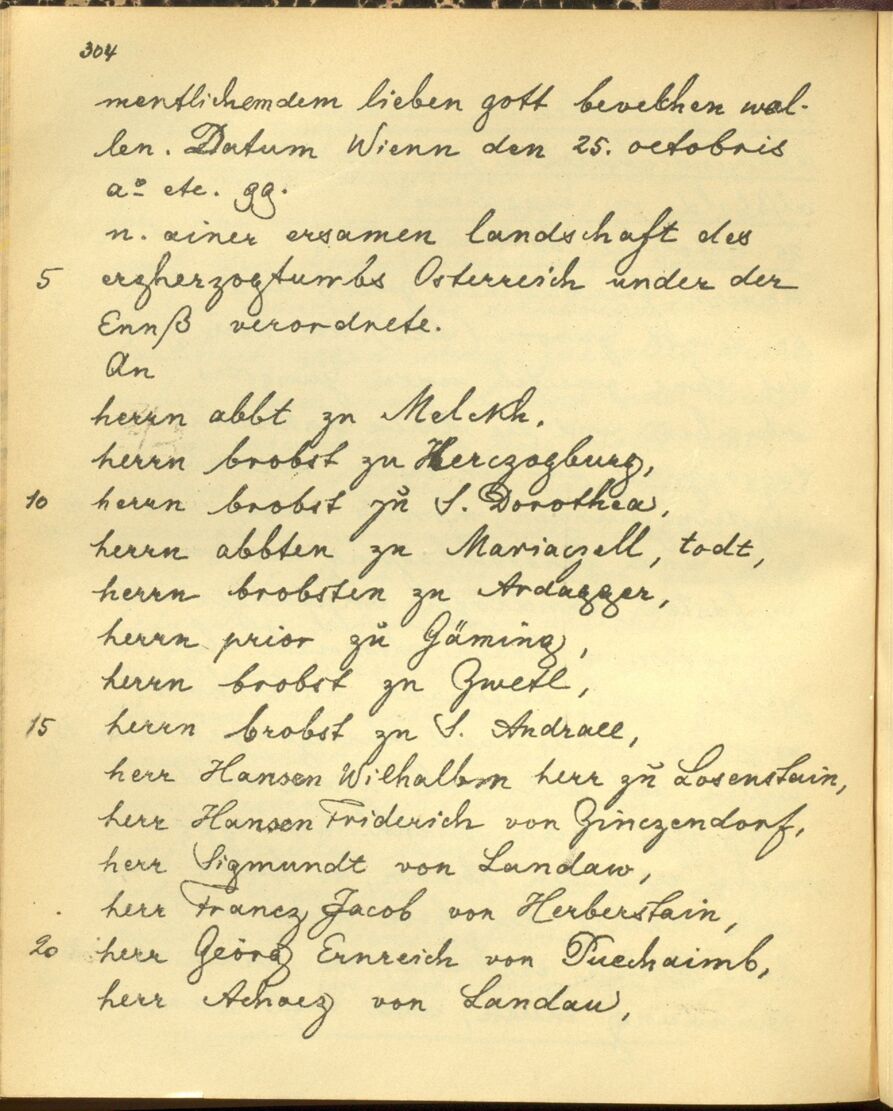 304
mentlichem dem lieben gott bevelhen wol-
len. Datum Wienn den 25. octobris
aº etc. gg.
n. ainer ersamen landschaft des
5 erzherzogtumbs Osterreich under der
Ennß verordnete.
An
herrn abbt zu Melckh,
herrn brobst zu Herczogburg,
10 herrn brobst zů S. Dorothea,
herrn abbten zu Mariaczell, todt,
herrn brobsten zu Ardagger,
herrn prior zů Gäming,
herrn brobst zu Zwetl,
15 herrn brobst zu S. Andraee,
herr Hansen Wilhalbm herr zů Losenstain,
herr Hansen Friderich von Zinczendorf,
herr Sigmundt von Landaw,
herr Francz Jacob von Herberstain,
20 herr Geörg Ernreich von Puechaimb,
herr Achacz von Landau,